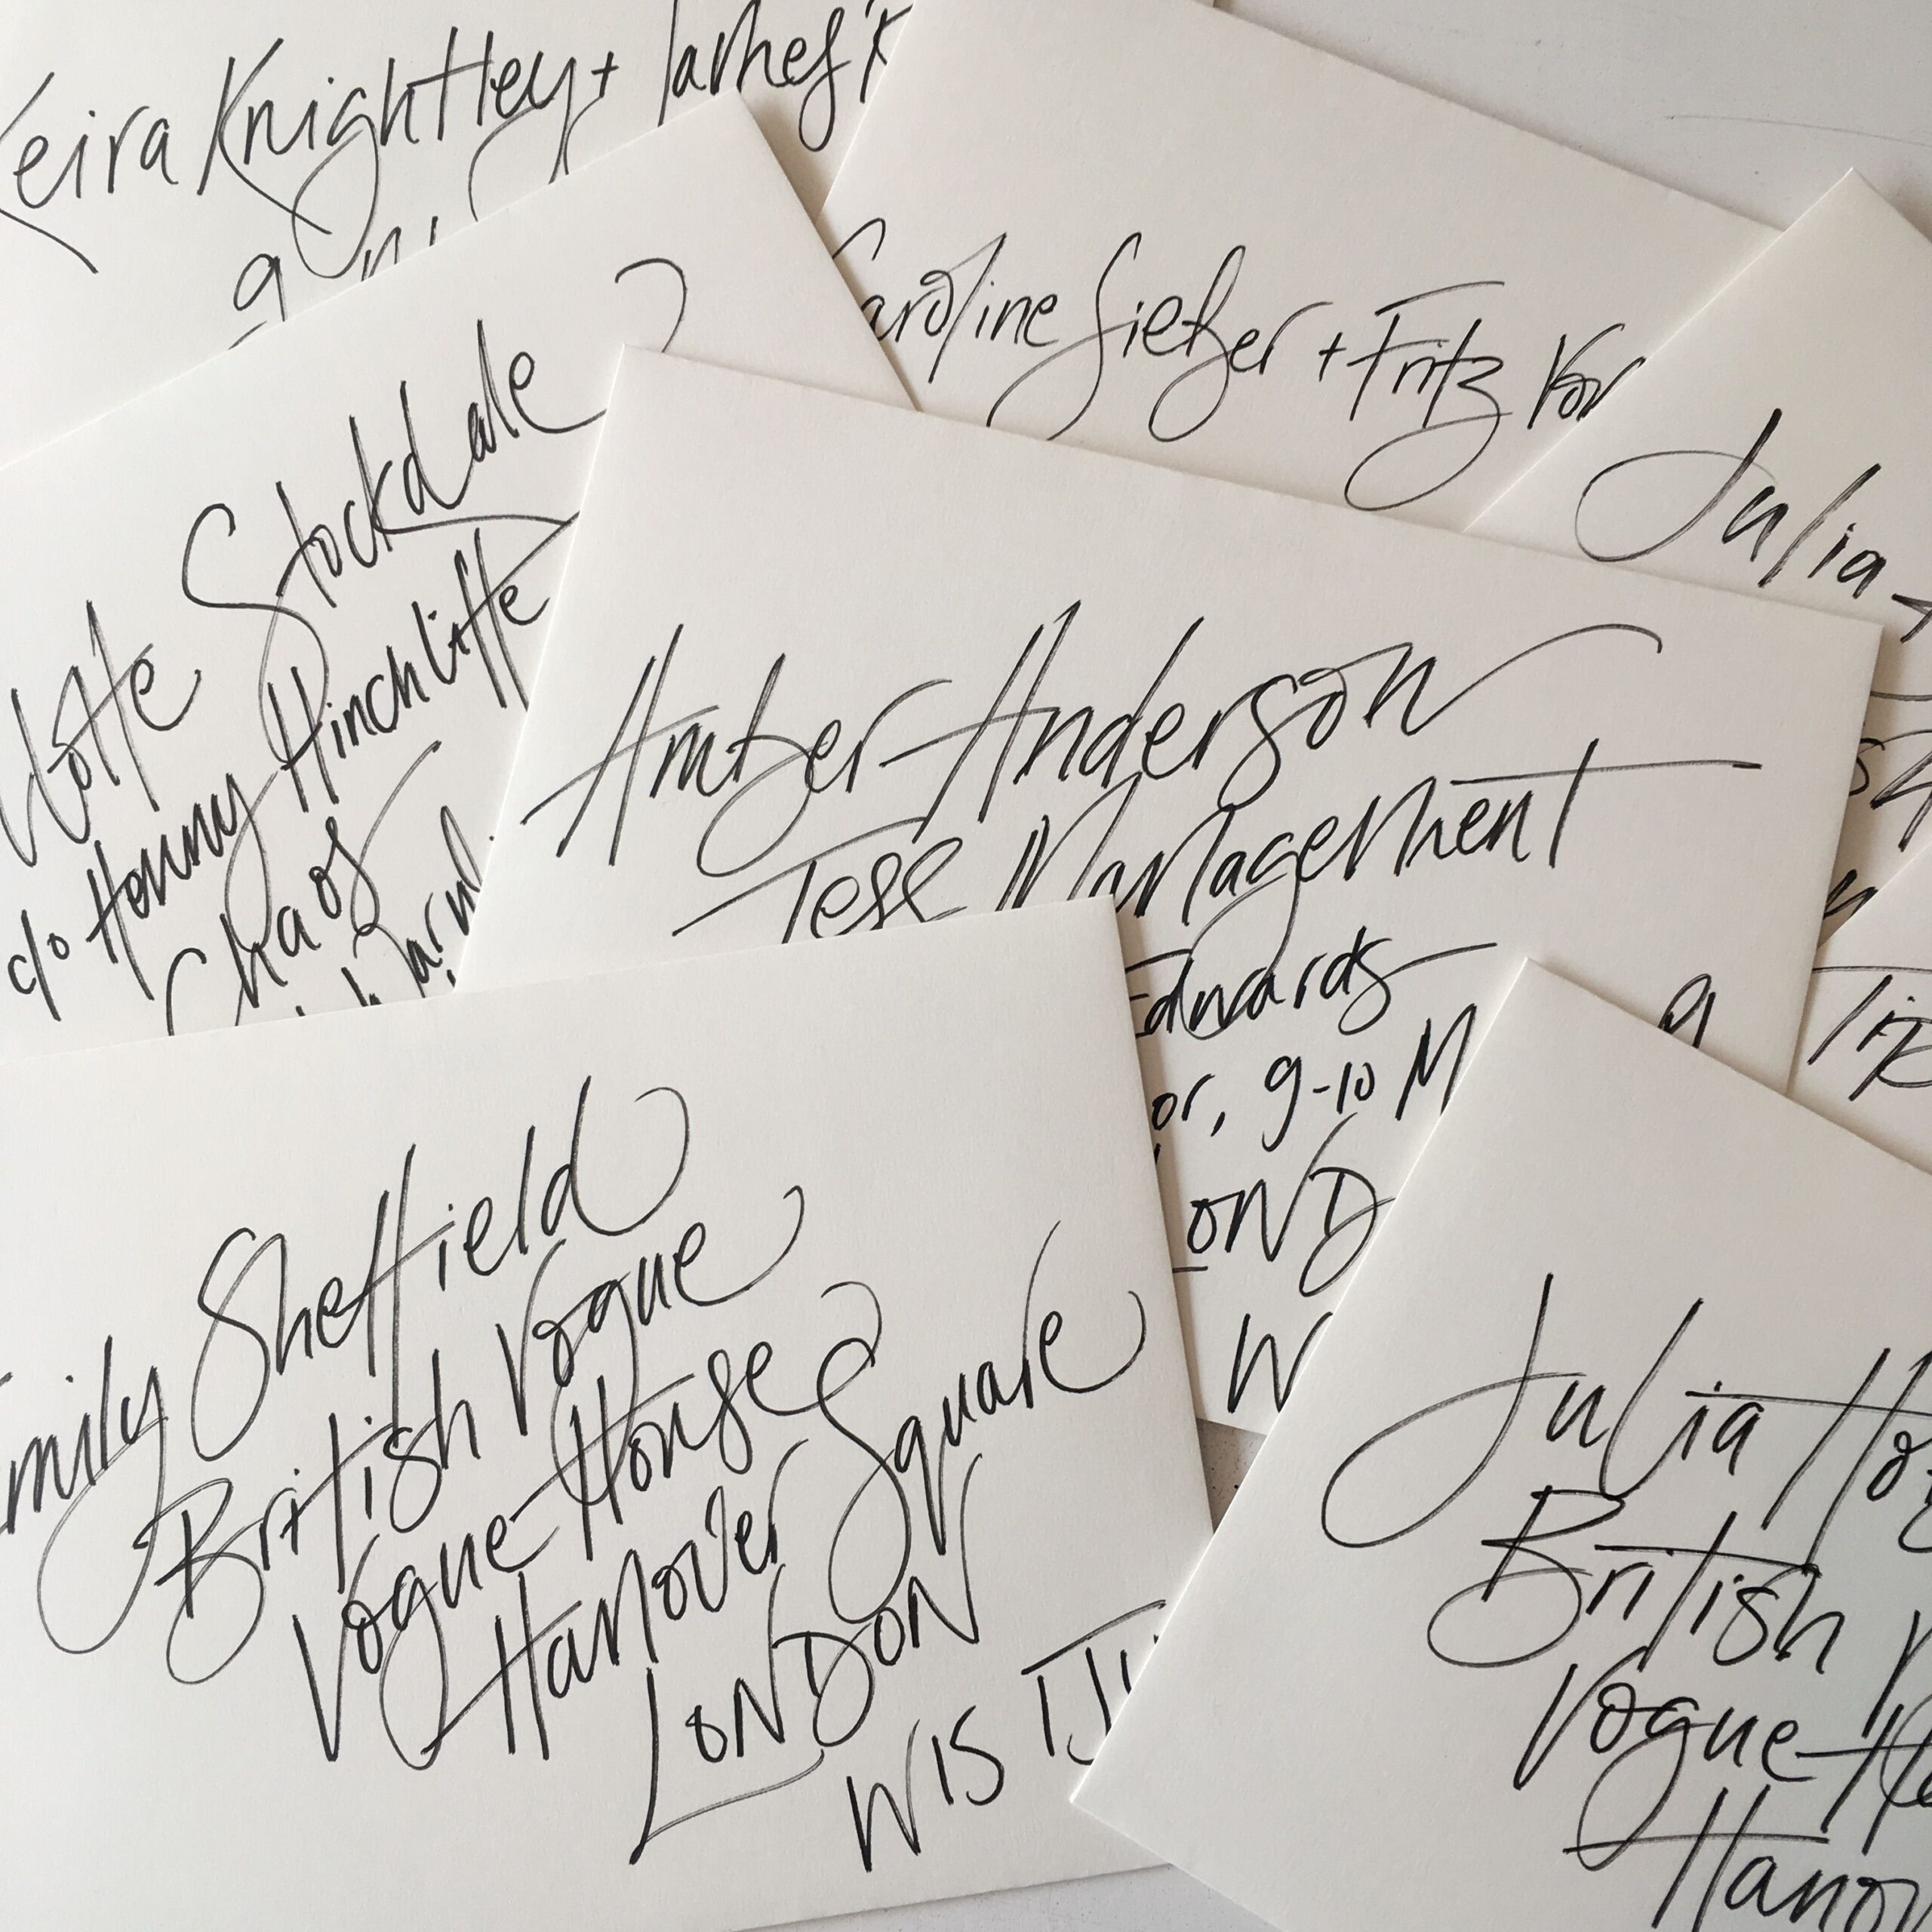 Keira Knightley + James R
9
Caroline Sieber + Fritz Von
Julia +
Stockdale
c/o Hinchliffe
Chaos
Amber Anderson
Tess Management
Edwards
or, 9-10 M
LOND
W
Tip
Emily Sheffield
British Vogue
Vogue House
Hanover Square
LONDON
W1S 1J
Julia Ho
British V
Vogue Ho
Hanov